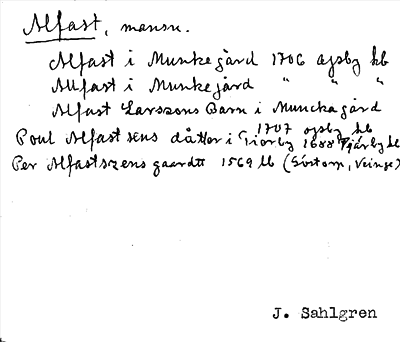 Alfast, mansn.
Alfast i Munkegård 1706 Ysby kb
Alfast i Munkejård " " "
Alfast Larssons Barn i Munckagård
1707 Ysby kb
Poul Alfastsens dåtter i Tiorby 1688 Tjärby kb
Per Alfastszens gaardtt 1569 lb (Göstorp, Veinge)
J. Sahlgren